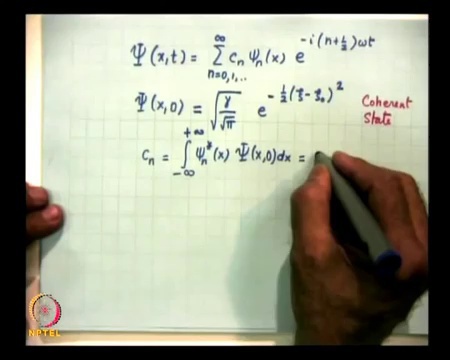 Ψ(x,t) = ∑ₙ₌₀,₁,..^∞ cₙ ψₙ(x) e^(-i(n+½)ωt)
Ψ(x,0) = √(γ/√π) e^(-½(ξ-ξ₀)²)
Coherent State
cₙ = ∫₋∞^(+∞) ψₙ*(x) Ψ(x,0)dx =
NPTEL